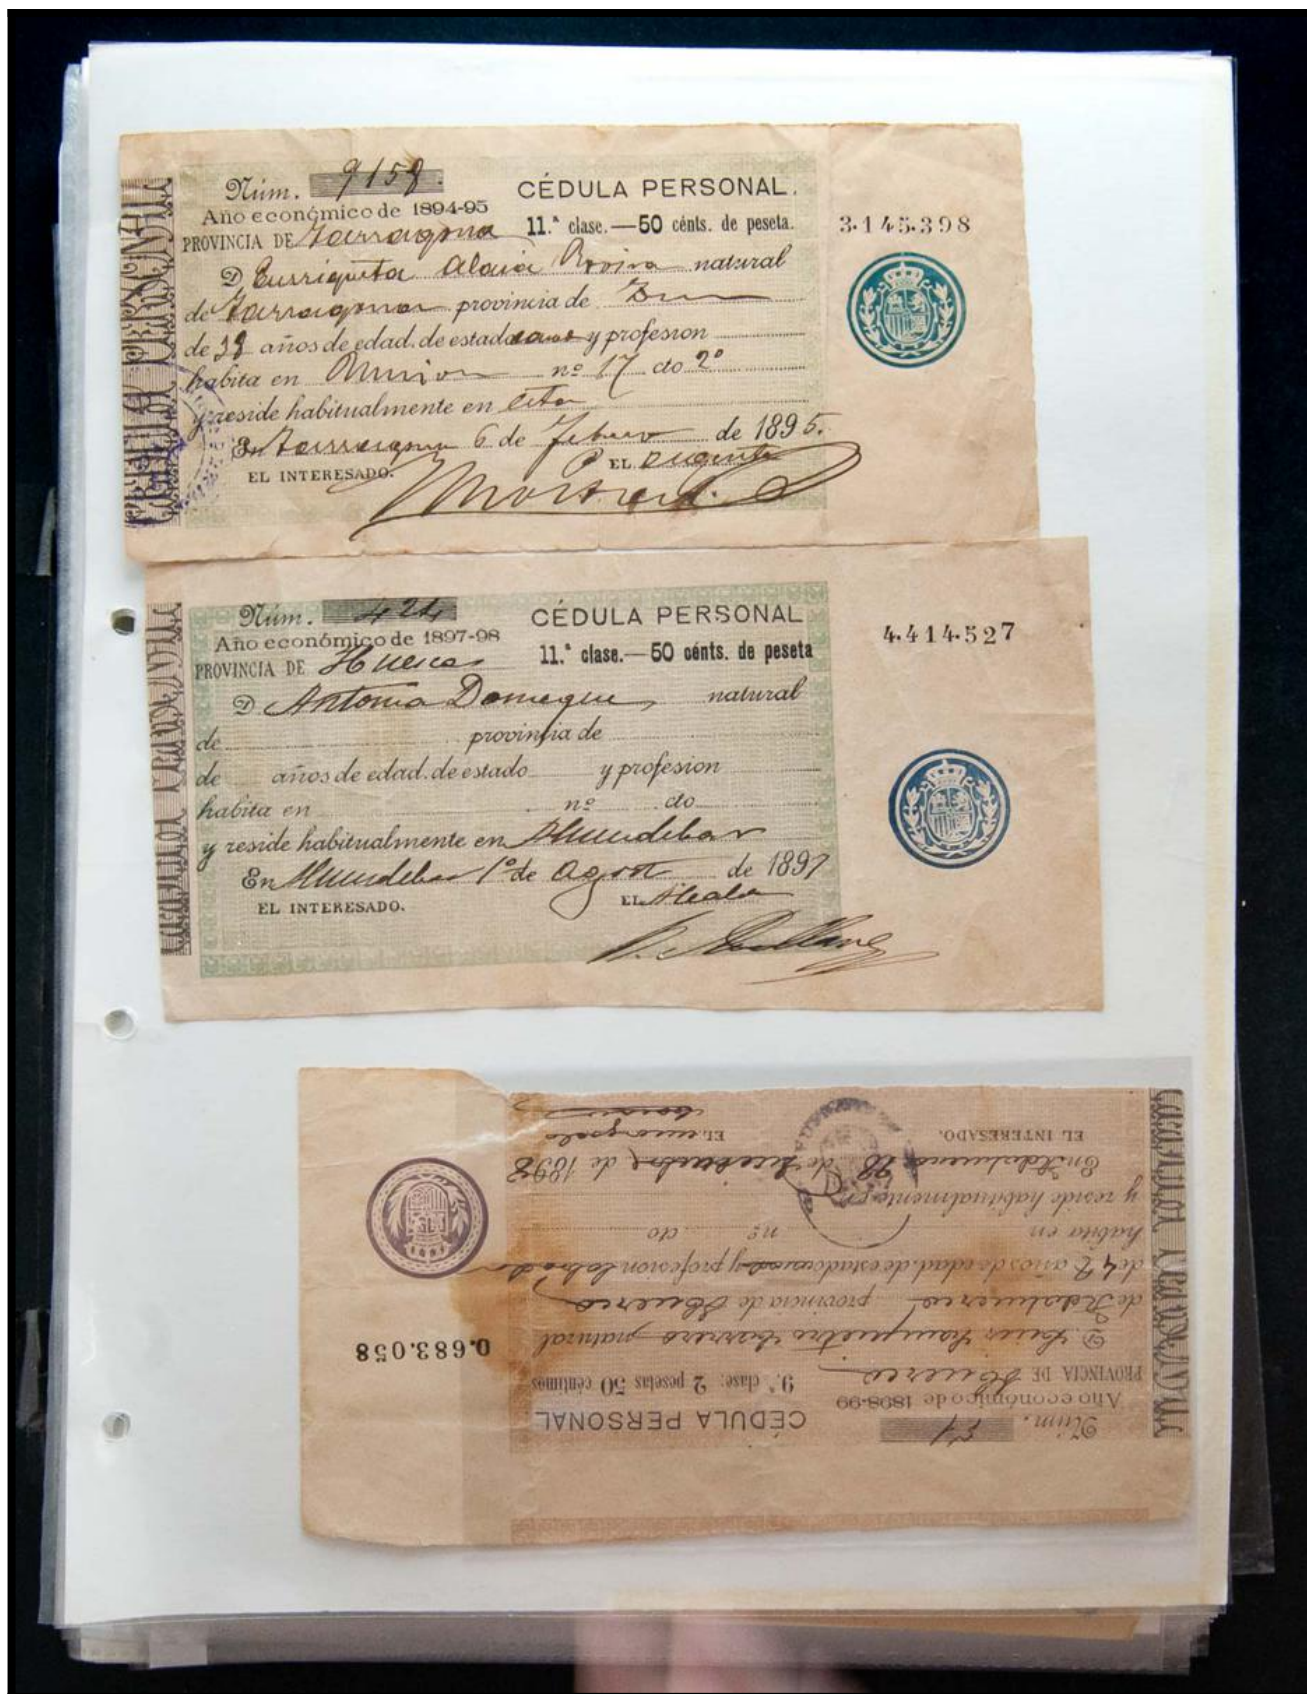 Núm. 9158.
CÉDULA PERSONAL.
Año económico de 1894-95
11.ª clase.—50 cénts. de peseta.
PROVINCIA DE Tarragona
3.145.398
D Enriqueta natural
de Tarragona provincia de
de años de edad, de estado y profesion
habita en nº 17 cto 2º
y reside habitualmente en esta
En Tarragona 6 de Febrero de 1895.
EL INTERESADO.
EL Agente
Núm. 424
CÉDULA PERSONAL
Año económico de 1897-98
11.ª clase.—50 cénts. de peseta
PROVINCIA DE Huesca
4.414.527
D Antonia Domeque natural
de provincia de
de años de edad, de estado y profesion
habita en nº cto
y reside habitualmente en Almudebar
En Almudebar 1º de Agosto de 1897
EL INTERESADO.
EL Alcalde
Núm.
CÉDULA PERSONAL
Año económico de 1898-99
9.ª clase: 2 pesetas 50 céntimos
PROVINCIA DE Huesca
0.683.058
D. natural
de provincia de Huesca
de 42 años de edad, de estado casado y profesion labrador
habita en nº cto
y reside habitualmente en
En de de 1898
EL INTERESADO.
EL